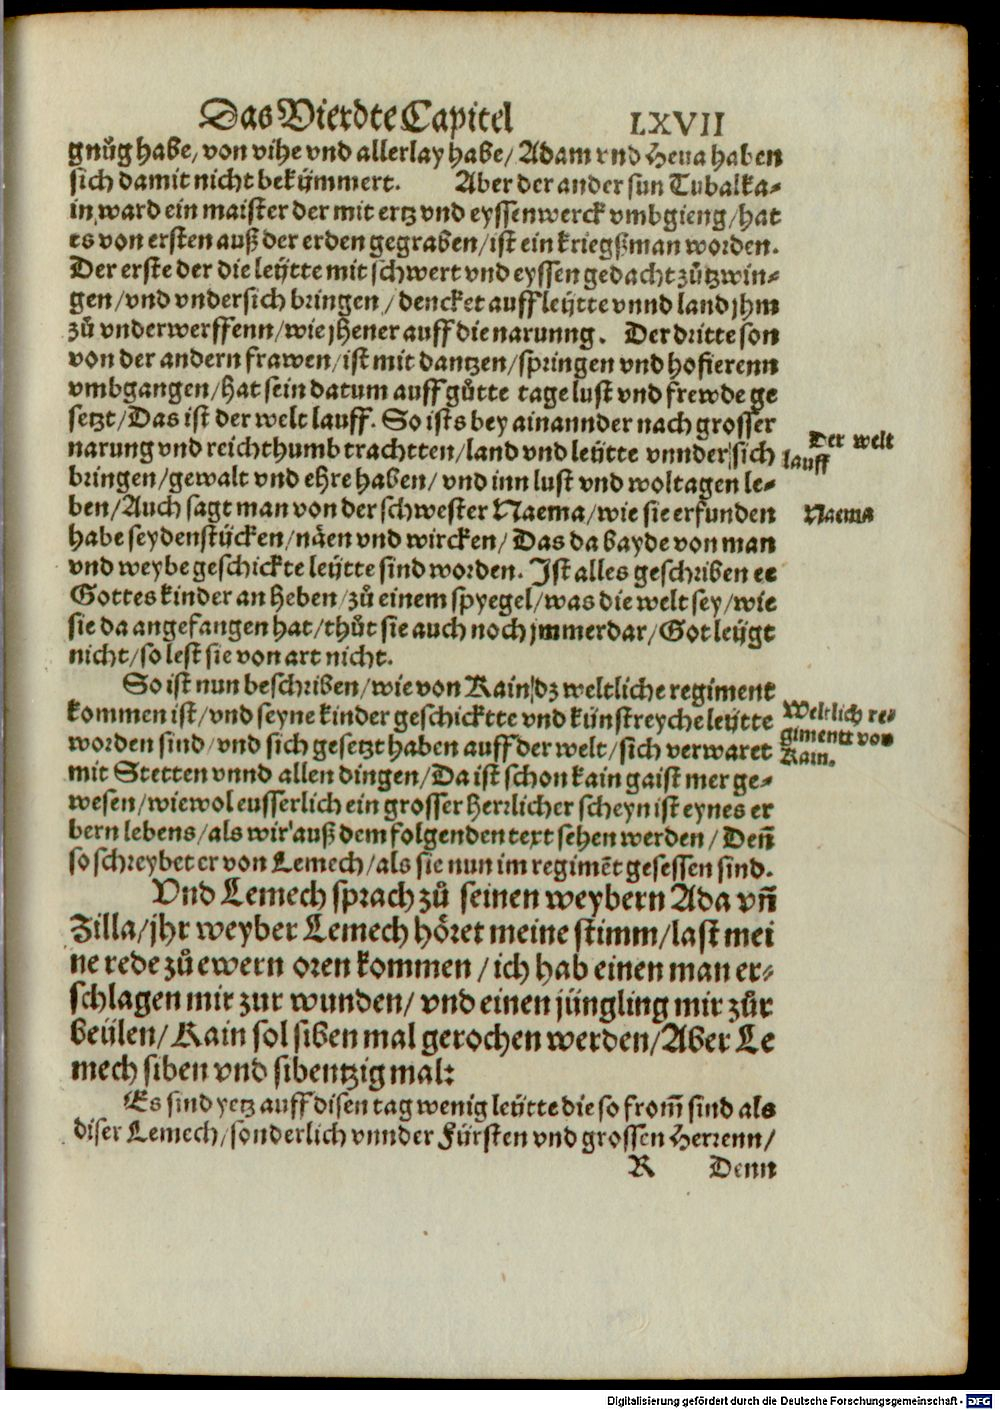 Das Vierdte Capitel LXVII
gnůg habe, von vihe vnd allerlay habe/ Adam vnd Heua haben
sich damit nicht bekÿmmert. Aber der ander sun Tubalka-
in, ward ein maister der mit ertz vnd eyssenwerck vmbgieng/hat
es von ersten auß der erden gegraben/ist ein kriegßman worden.
Der erste der die leÿtte mit schwert vnd eyssen gedacht zůtzwin-
gen/vnd vndersich bringen/dencket auff leÿtte vnnd land jhm
zů vnderwerffenn/wie jhener auff die narunng. Der dritte son
von der andern frawen/ist mit dantzen/springen vnd hofierenn
vmbgangen/hat sein datum auff gůtte tage lust vnd frewde ge
setzt/Das ist der welt lauff. So ists bey ainannder nach grosser
Der welt
lauff
narung vnd reichthumb trachtten/land vnd leÿtte vnnder sich
bringen/gewalt vnd ehre haben/vnd inn lust vnd woltagen le-
ben/Auch sagt man von der schwester Naema/wie sie erfunden
Naema
habe seydenstÿcken/näen vnd wircken/Das da bayde von man
vnd weybe geschickte leÿtte sind worden. Ist alles geschriben ee
Gottes kinder an heben/zů einem spyegel/was die welt sey/wie
sie da angefangen hat/thůt sie auch noch jmmerdar/Got leÿgt
nicht/so lest sie von art nicht.
So ist nun beschriben/wie von Kain dz weltliche regiment
kommen ist/vnd seyne kinder geschicktte vnd kÿnstreyche leÿtte
Weltlich re-
gimentt von
Kain.
worden sind/vnd sich gesetzt haben auff der welt/sich verwaret
mit Stetten vnnd allen dingen/Da ist schon kain gaist mer ge-
wesen/wiewol eusserlich ein grosser herrlicher scheyn ist eynes er
bern lebens/als wir auß dem folgenden text sehen werden/Deñ
so schreybet er von Lemech/als sie nun im regimēt gesessen sind.
Vnd Lemech sprach zů seinen weybern Ada vñ
Zilla/jhr weyber Lemech höret meine stimm/last mei
ne rede zů ewern oren kommen/ich hab einen man er-
schlagen mir zur wunden/vnd einen jüngling mir zůr
beÿlen/Kain sol siben mal gerochen werden/Aber Le
mech siben vnd sibentzig mal:
Es sind yetz auff disen tag wenig leÿtte die so from̃ sind als
diser Lemech/sonderlich vnnder Fürsten vnd grossen Herrenn/
R Denn
Digitalisierung gefördert durch die Deutsche Forschungsgemeinschaft - DFG